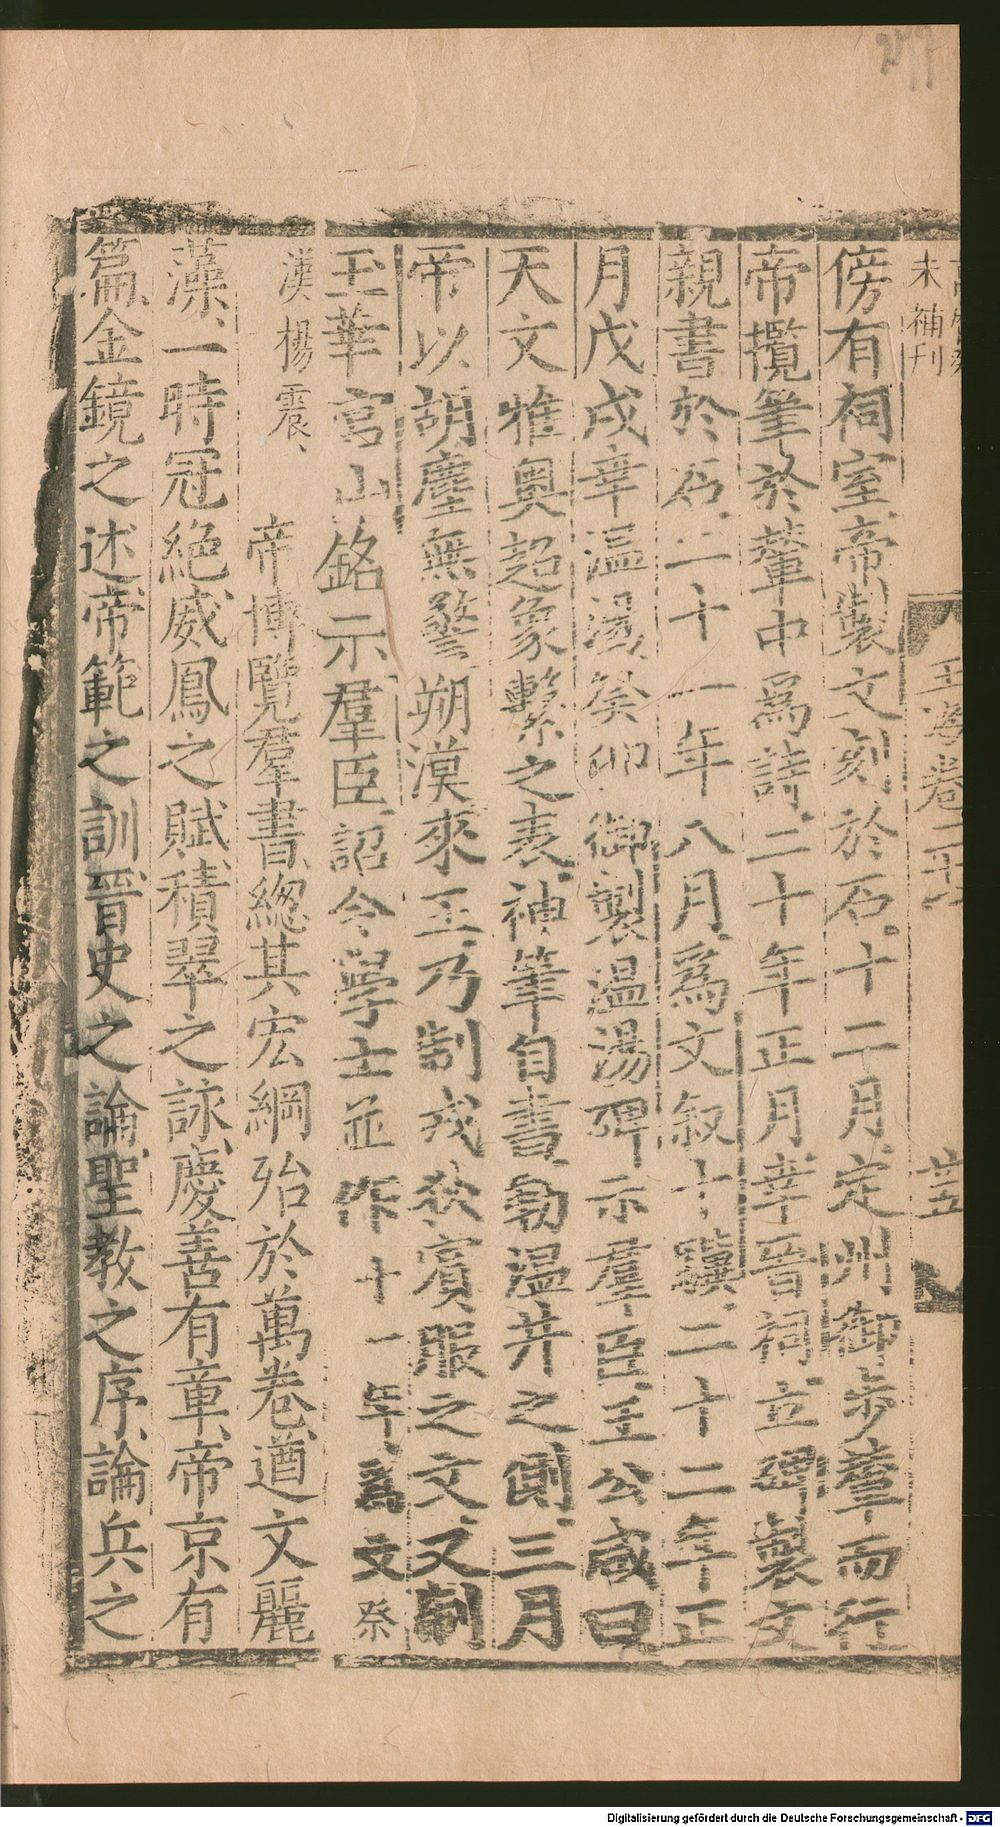 未補刊
玉海卷二十八
廿五
傍有祠室帝製文刻於石十二月定州御步輦而行
帝攬筆於輦中爲詩二十年正月幸晉祠立碑製文
親書於石二十一年八月爲文叙十驥二十二年正
月戊戌幸溫湯癸卯御製溫湯碑示羣臣王公咸曰
天文雅奧超象繫之表神筆自書勒溫井之側三月
帝以胡塵無警朔漠來王乃制戎狄賓服之文又制
玉華宮山銘示羣臣詔令學士並作十一年爲文祭
漢楊震帝博覽羣書總其宏綱殆於萬卷遒文麗
藻一時冠絕威鳳之賦積翠之詠慶善有章帝京有
篇金鏡之述帝範之訓晉史之論聖教之序論兵之
Digitalisierung gefördert durch die Deutsche Forschungsgemeinschaft - DFG